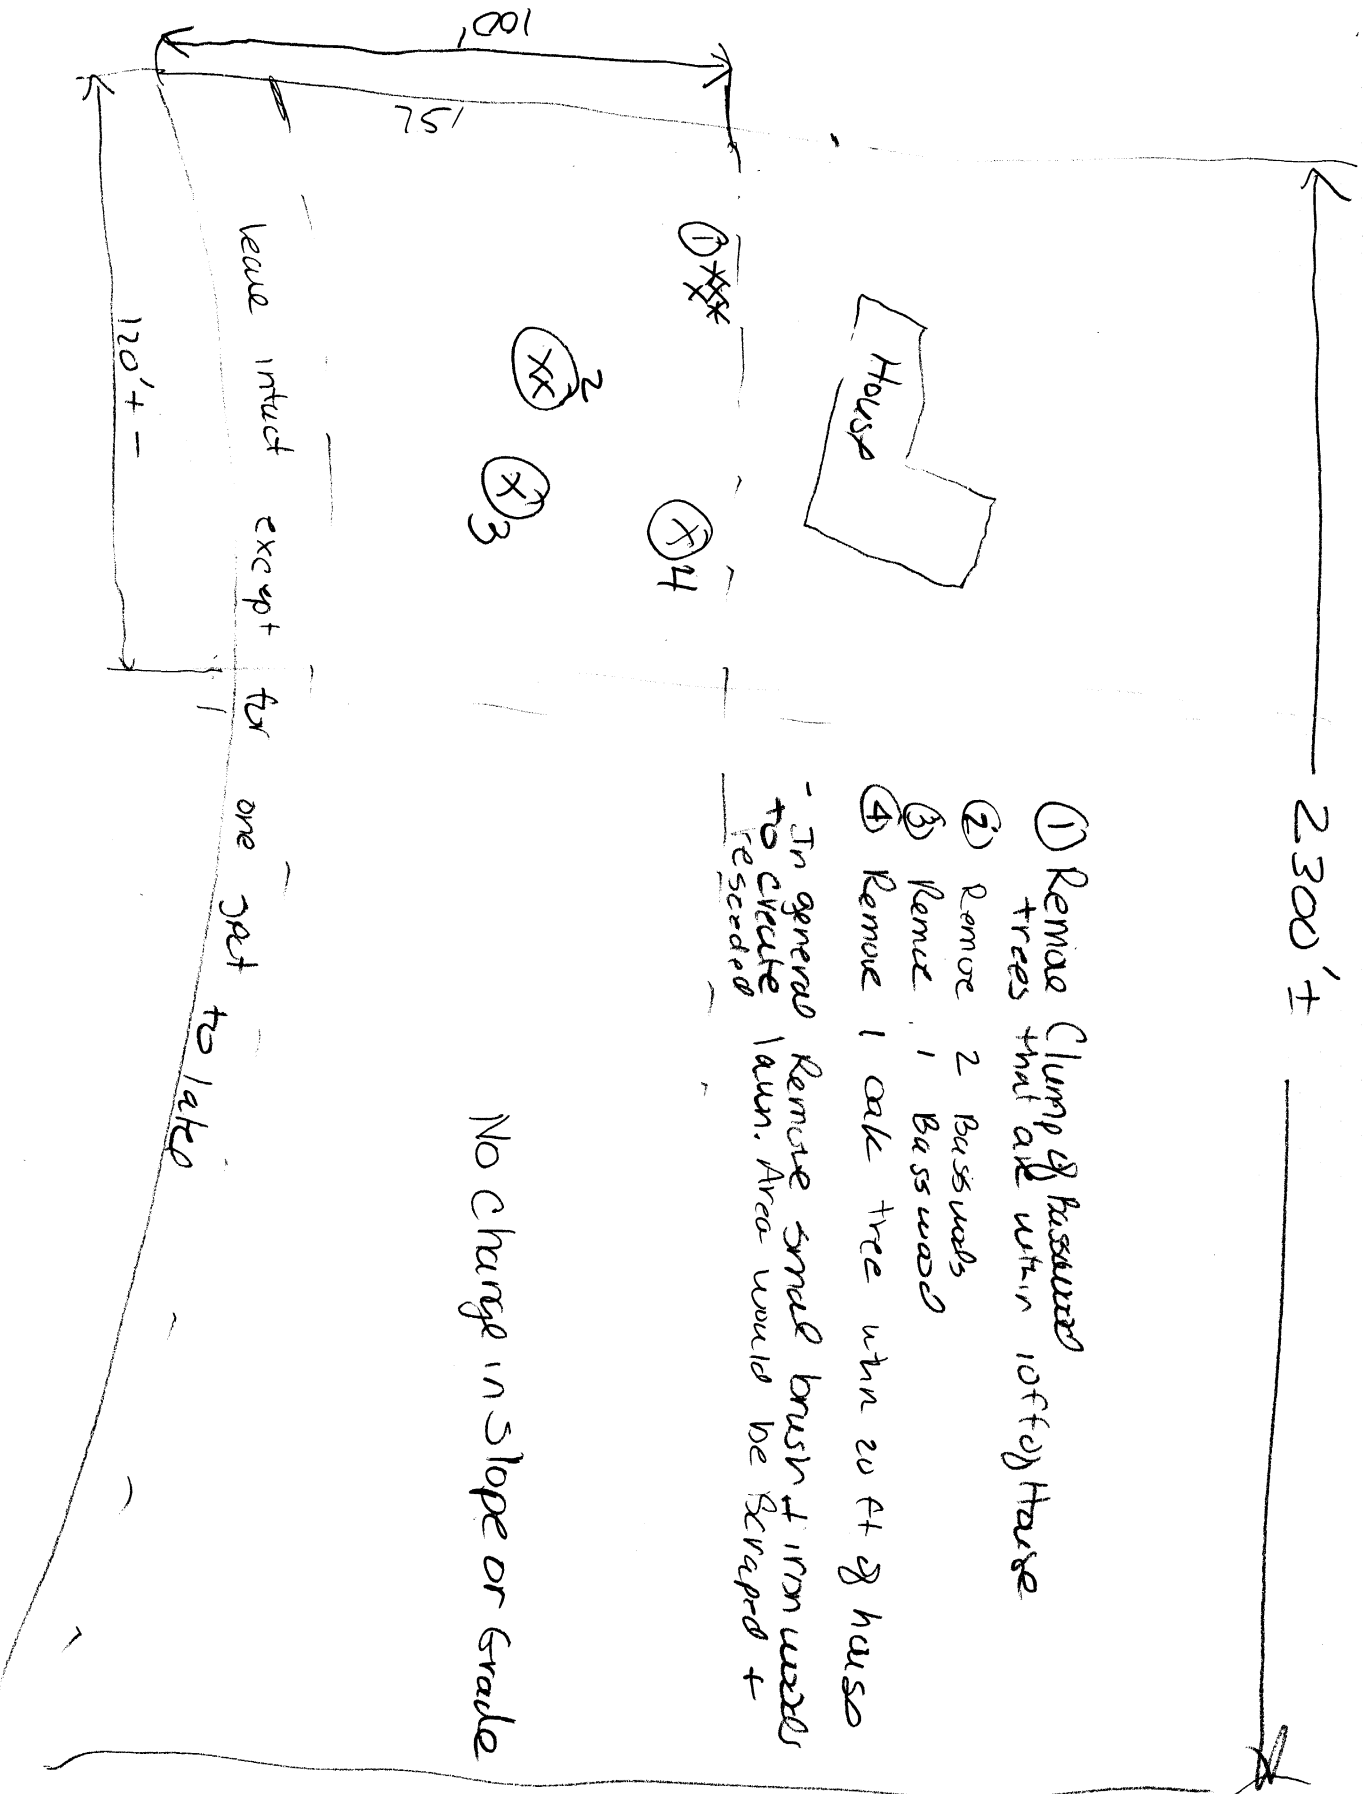 2300'±
① Remove Clump of Basswood
trees that are within 10ft of House
② Remove 2 Basswoods
③ Remove 1 Basswood
④ Remove 1 oak tree within 20 ft of house
- In general Remove small brush + ironwoods
to create lawn. Area would be scraped +
reseeded
House
① xxxxx
xx 2
x 3
x 4
100'
75'
No change in Slope or Grade
leave intact except for one spot to lake
120'+-